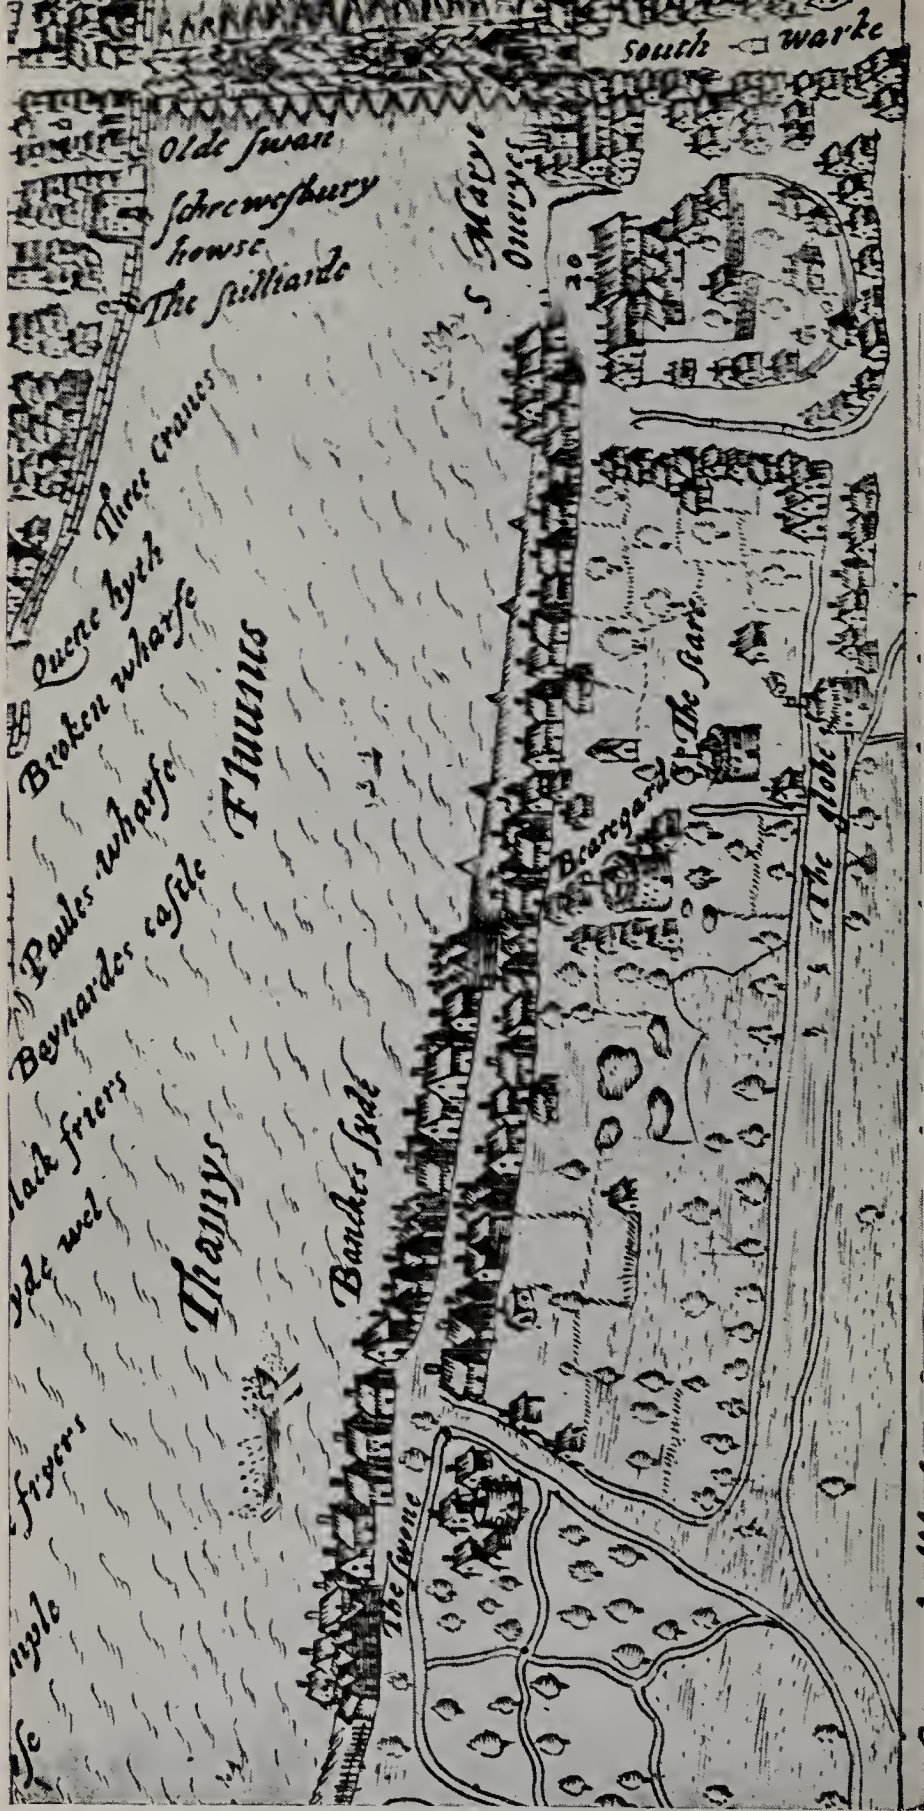 South warke
Olde ſwan
ſchreweſbury
howse
The ſtilliarde
S Marye
Oueryes
20
Three cranes
Quene hyth
Broken wharfe
Fluuius
Paules wharfe
Beynardes caſtle
lack friers
yde wel
Thamys
Banckes ſyde
The ſtare
Bearegard
The globe
fryers
mple
The ſwne
ſe